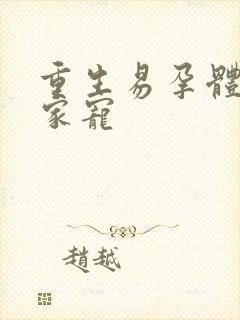 重生易孕體
家寵
趙越